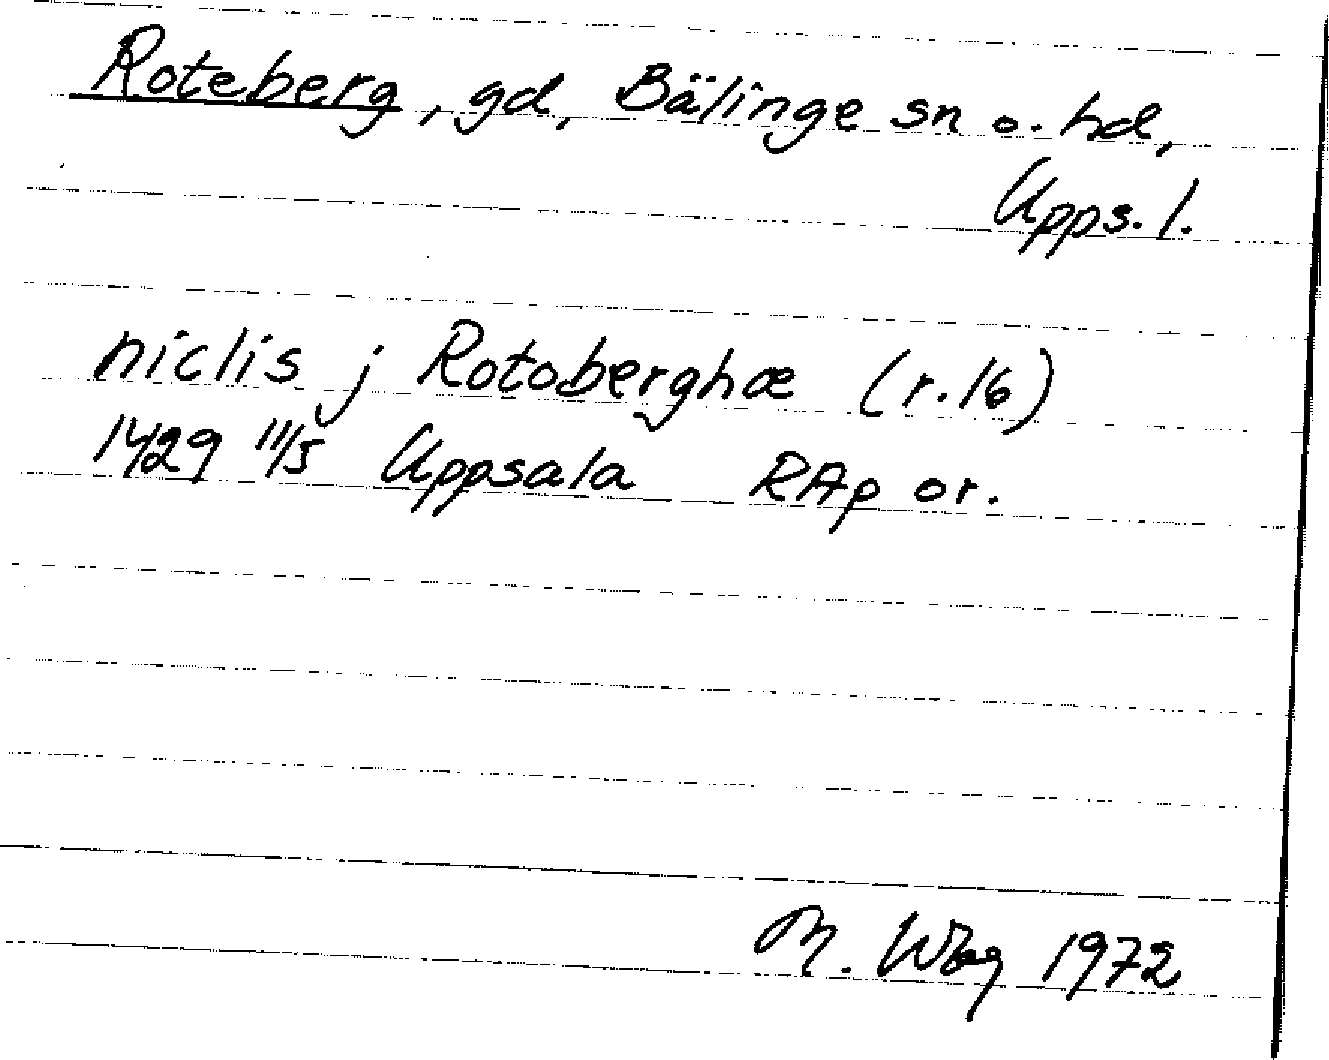 Roteberg, gd, Bälinge sn o. hd,
Upps. l.
niclis j Rotoberghæ (r.16)
1429 11/5 Uppsala RAp or.
M. Wbg 1972